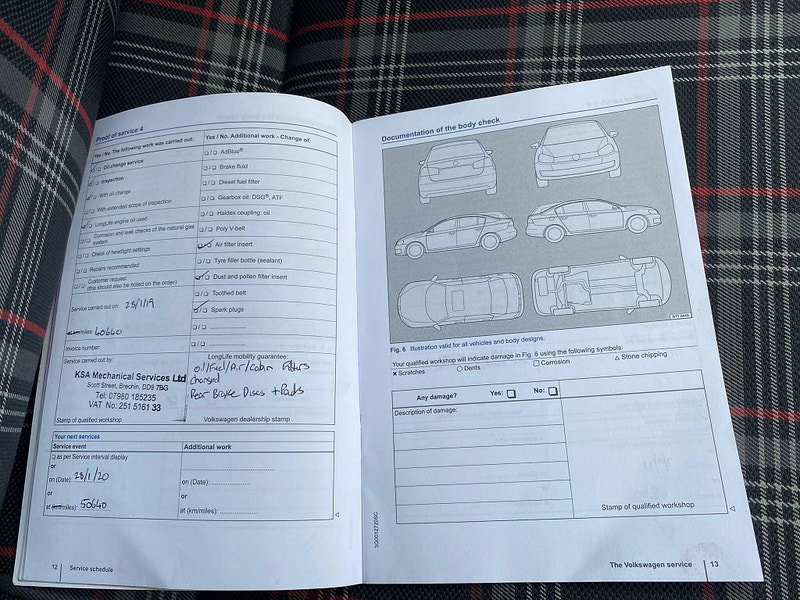 Proof of service 4
Yes / No. The following work was carried out:
Oil change service
Inspection
With oil change
With extended scope of inspection
LongLife engine oil used
Corrosion and leak checks of the natural gas system
Check of headlight settings
Repairs recommended
Customer request
(this should also be noted on the order)
Service carried out on: 23/1/19
miles: 40640
Invoice number:
Service carried out by:
KSA Mechanical Services Ltd
Scott Street, Brechin, DD9 7BG
Tel: 07980 185235
VAT No: 251 5161 33
Stamp of qualified workshop
Yes / No. Additional work - Change of:
AdBlue®
Brake fluid
Diesel fuel filter
Gearbox oil: DSG®, ATF
Haldex coupling: oil
Poly V-belt
Air filter insert
Tyre filler bottle (sealant)
Dust and pollen filter insert
Toothed belt
Spark plugs
LongLife mobility guarantee:
oil/Fuel/Air/Cabin Filters
changed
Rear Brake Discs + Pads
Volkswagen dealership stamp
Your next services
Service event
Additional work
as per Service interval display
or
on (Date): 23/1/20
or
at (km/miles): 50640
on (Date):
or
at (km/miles):
12
Service schedule
Documentation of the body check
Fig. 6 Illustration valid for all vehicles and body designs.
Your qualified workshop will indicate damage in Fig. 6 using the following symbols:
Scratches
Dents
Corrosion
Stone chipping
Any damage?
Yes:
No:
Description of damage:
Stamp of qualified workshop
The Volkswagen service
13